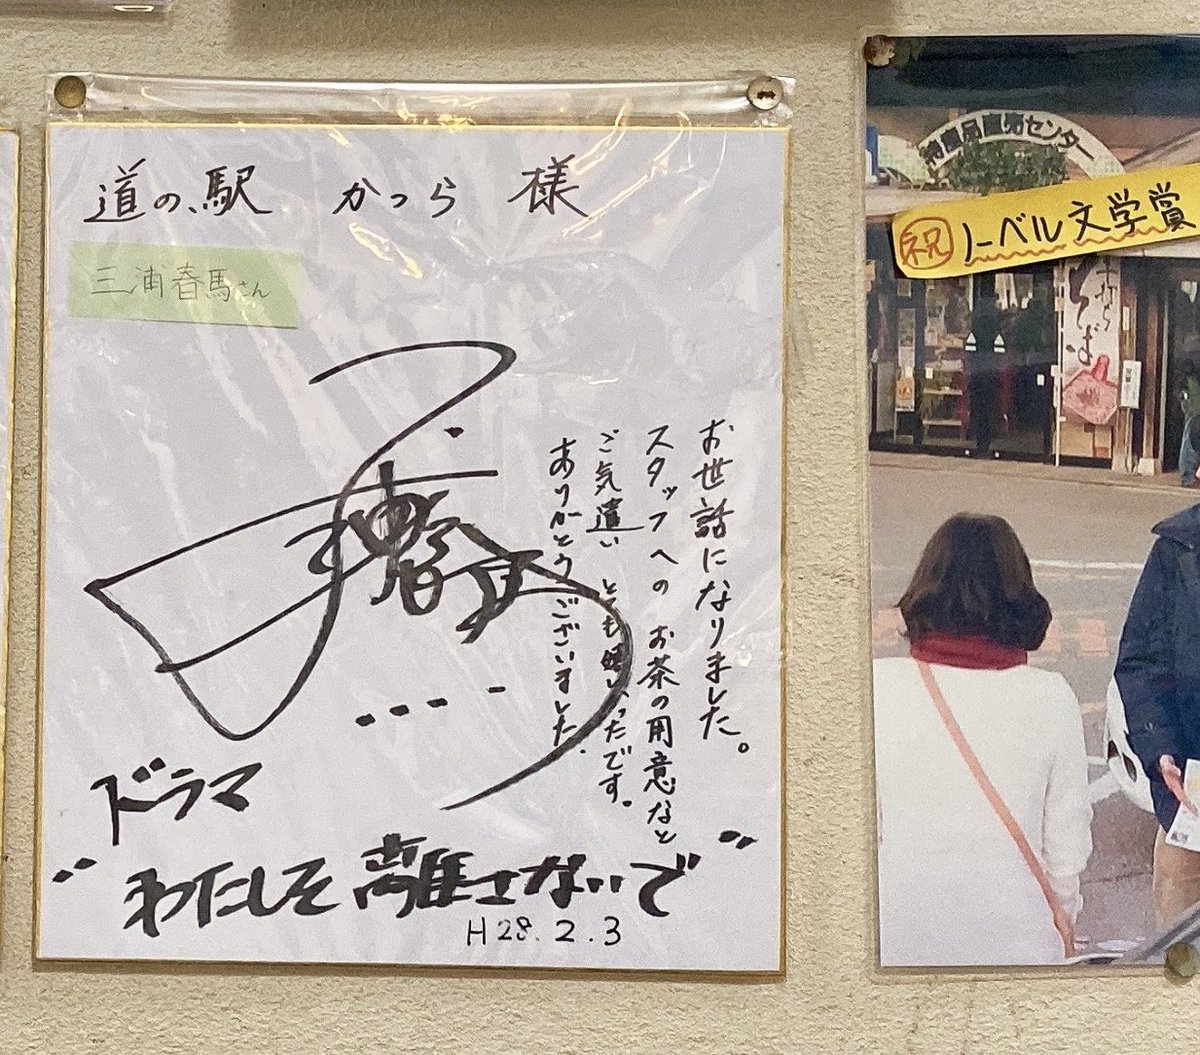 道の駅 かつら 様
三浦春馬さん
お世話になりました。
スタッフへの お茶の用意など
ご気遣い とても嬉しかったです。
ありがとうございました.
ドラマ
"わたしを離さないで"
H28.2.3
特産品直売センター
祝 ノーベル文学賞
手打ち
そば